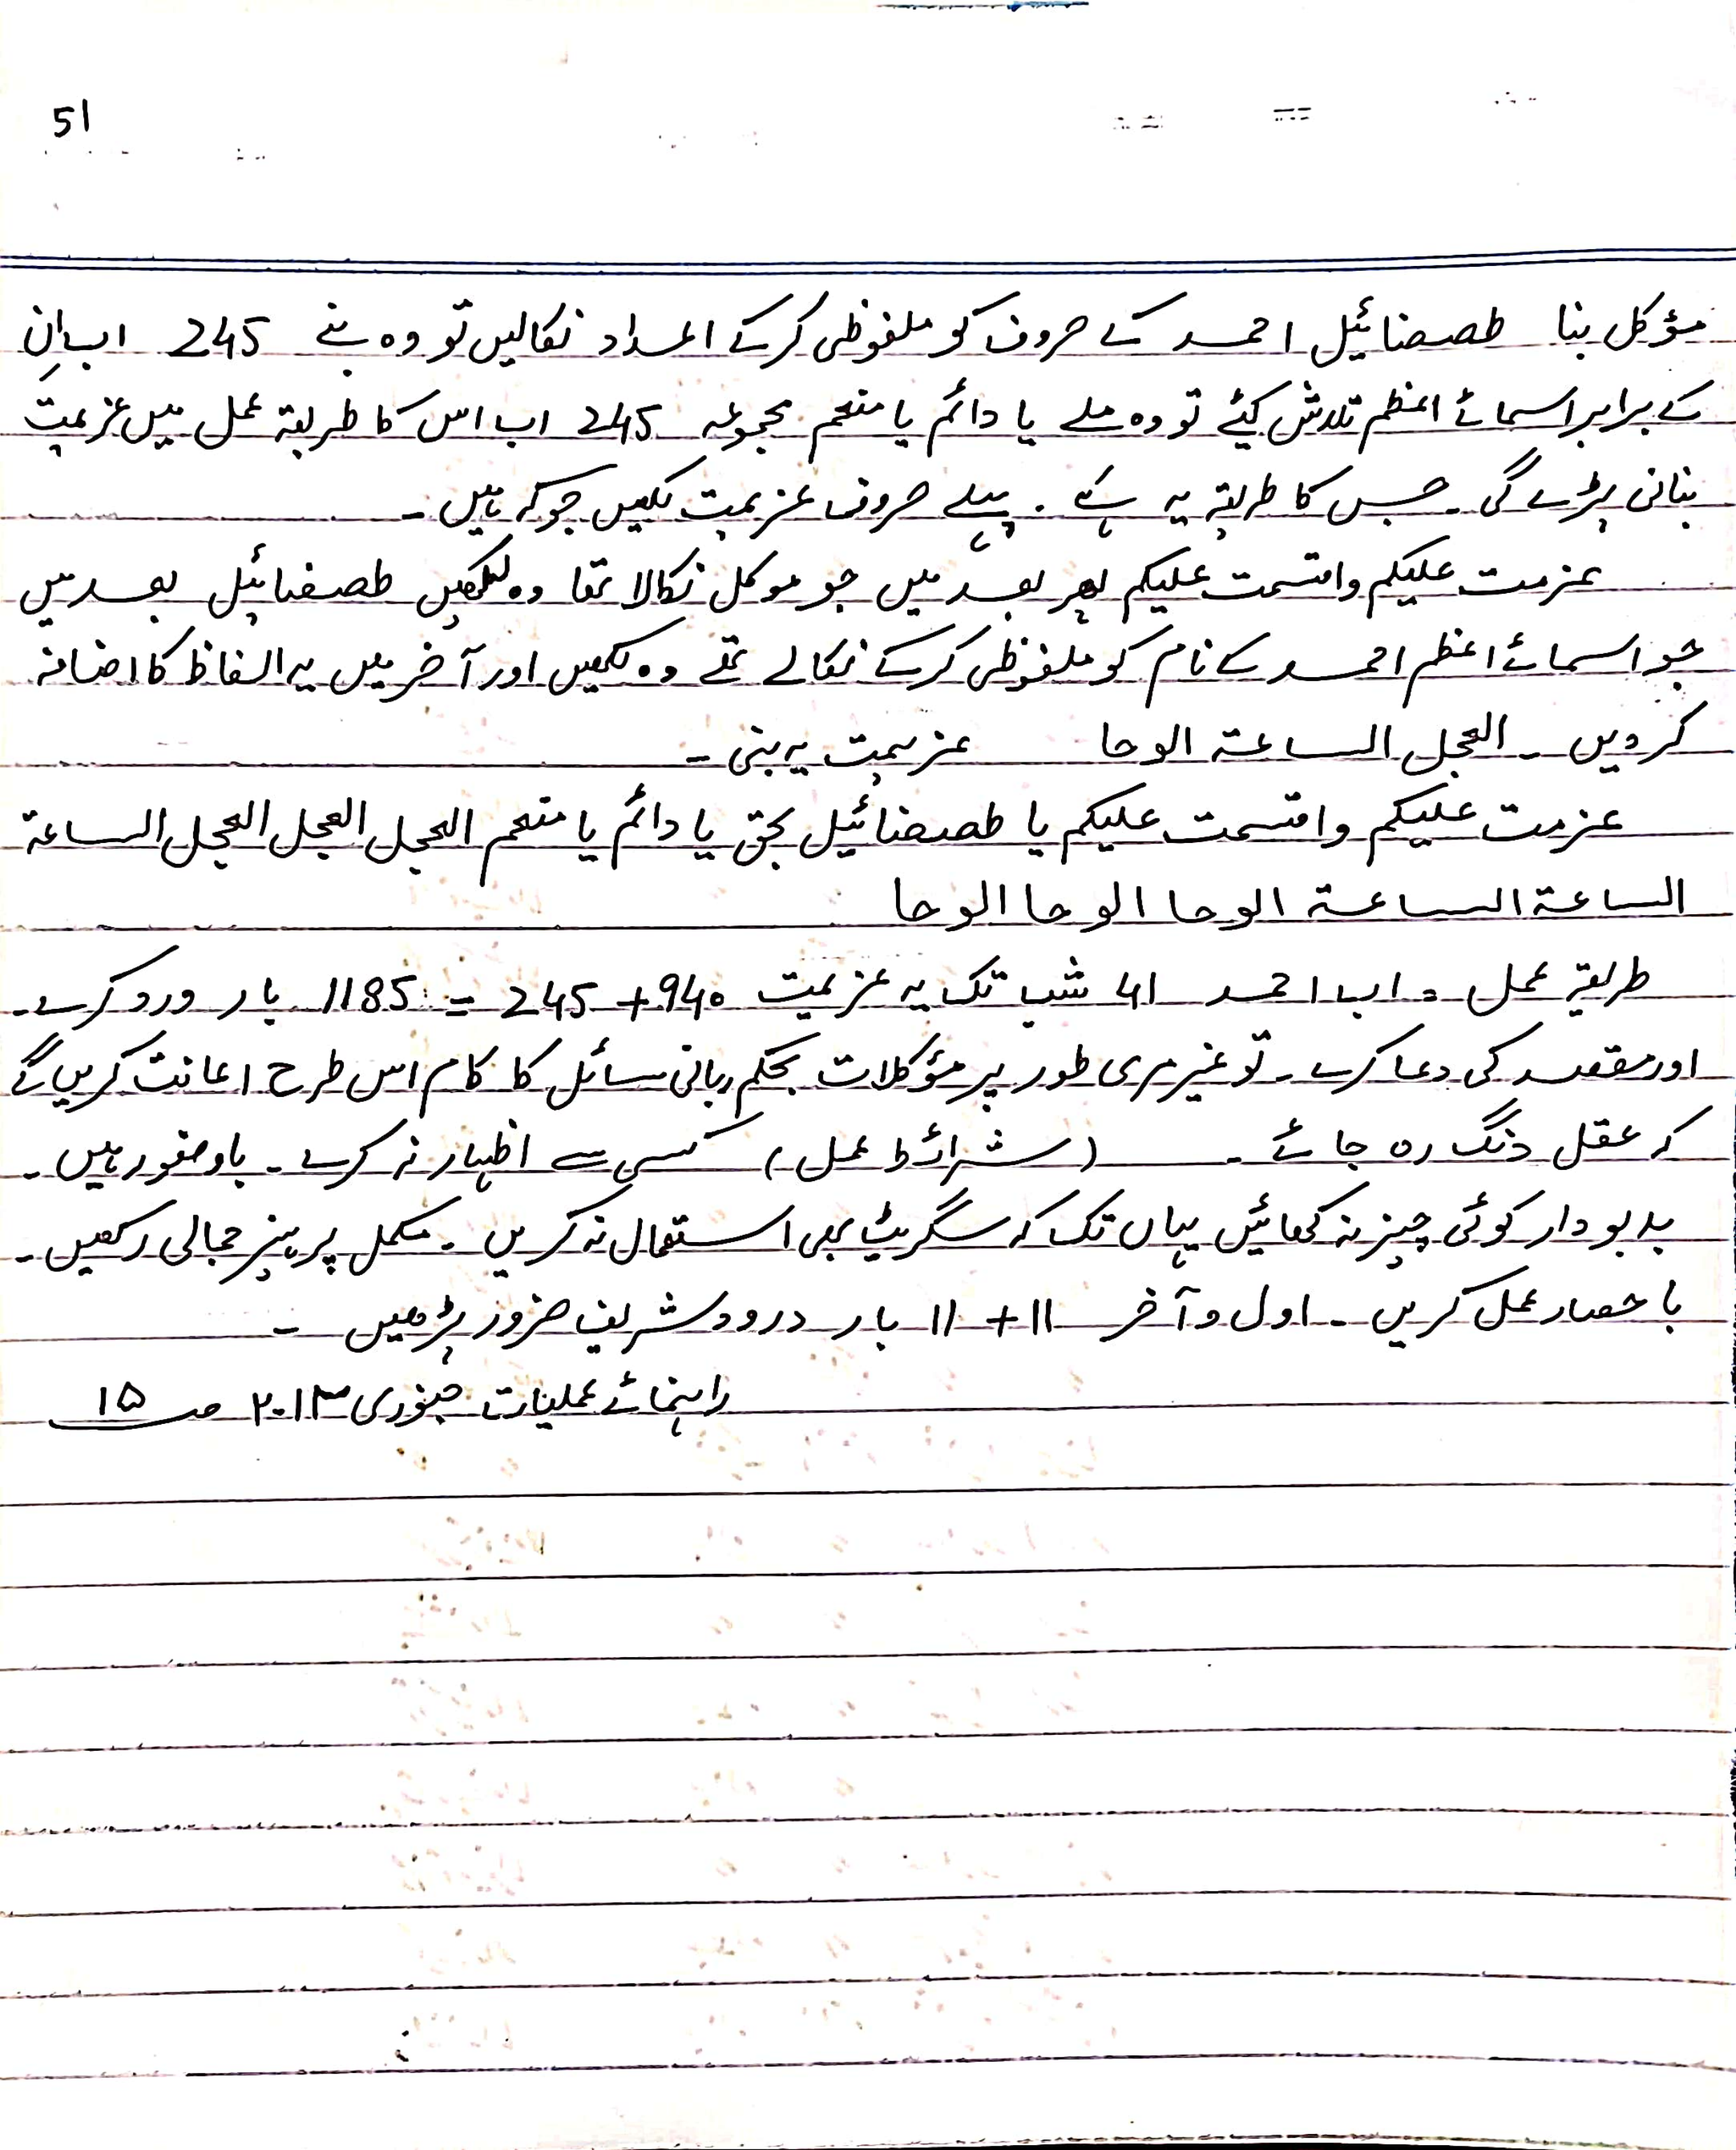 51
مؤکل بنا طصضائیل احمد کے حروف کو ملفوظی کرکے اعداد نکالیں تو وہ بنے 245 اب اِن
کے برابر اسمائے اعظم تلاش کیئے تو وہ ملے یا دائم یا منعم مجموعہ 245 اب اس کا طریقہ عمل میں عزیمت
بنانی پڑے گی۔ جس کا طریقہ یہ ہے۔ پہلے حروف عزیمت لکھیں جوکہ ہیں۔
عزمت علیکم واقسمت علیکم پھر بعد میں جو موکل نکالا تھا وہ لکھیں طصضائیل بعد میں
جو اسمائے اعظم احمد کے نام کو ملفوظی کرکے نکالے تھے وہ لکھیں اور آخر میں یہ الفاظ کا اضافہ
کردیں۔ العجل الساعة الوحا عزیمت یہ بنی۔
عزمت علیکم واقسمت علیکم یا طصضائیل بحق یا دائم یا منعم العجل العجل العجل الساعة
الساعة الساعة الوحا الوحا الوحا
طریقہ عمل = اب احمد 41 شب تک یہ عزیمت 940 + 245 = 1185 بار ورد کرے۔
اور مقصد کی دعا کرے۔ تو غیر مرئی طور پر مؤکلات بحکم ربانی سائل کا کام اس طرح اعانت کریں گے
کہ عقل دنگ رہ جائے۔ (شرائط عمل) کسی سے اظہار نہ کرے۔ باوضو رہیں۔
بدبودار کوئی چیز نہ کھائیں یہاں تک کہ سگریٹ بھی استعمال نہ کریں۔ مکمل پرہیز جمالی رکھیں۔
با حصار عمل کریں۔ اول و آخر 11 + 11 بار درود شریف ضرور پڑھیں۔
راہنمائے عملیات جنوری ۲۰۱۳ صـ ۱۵